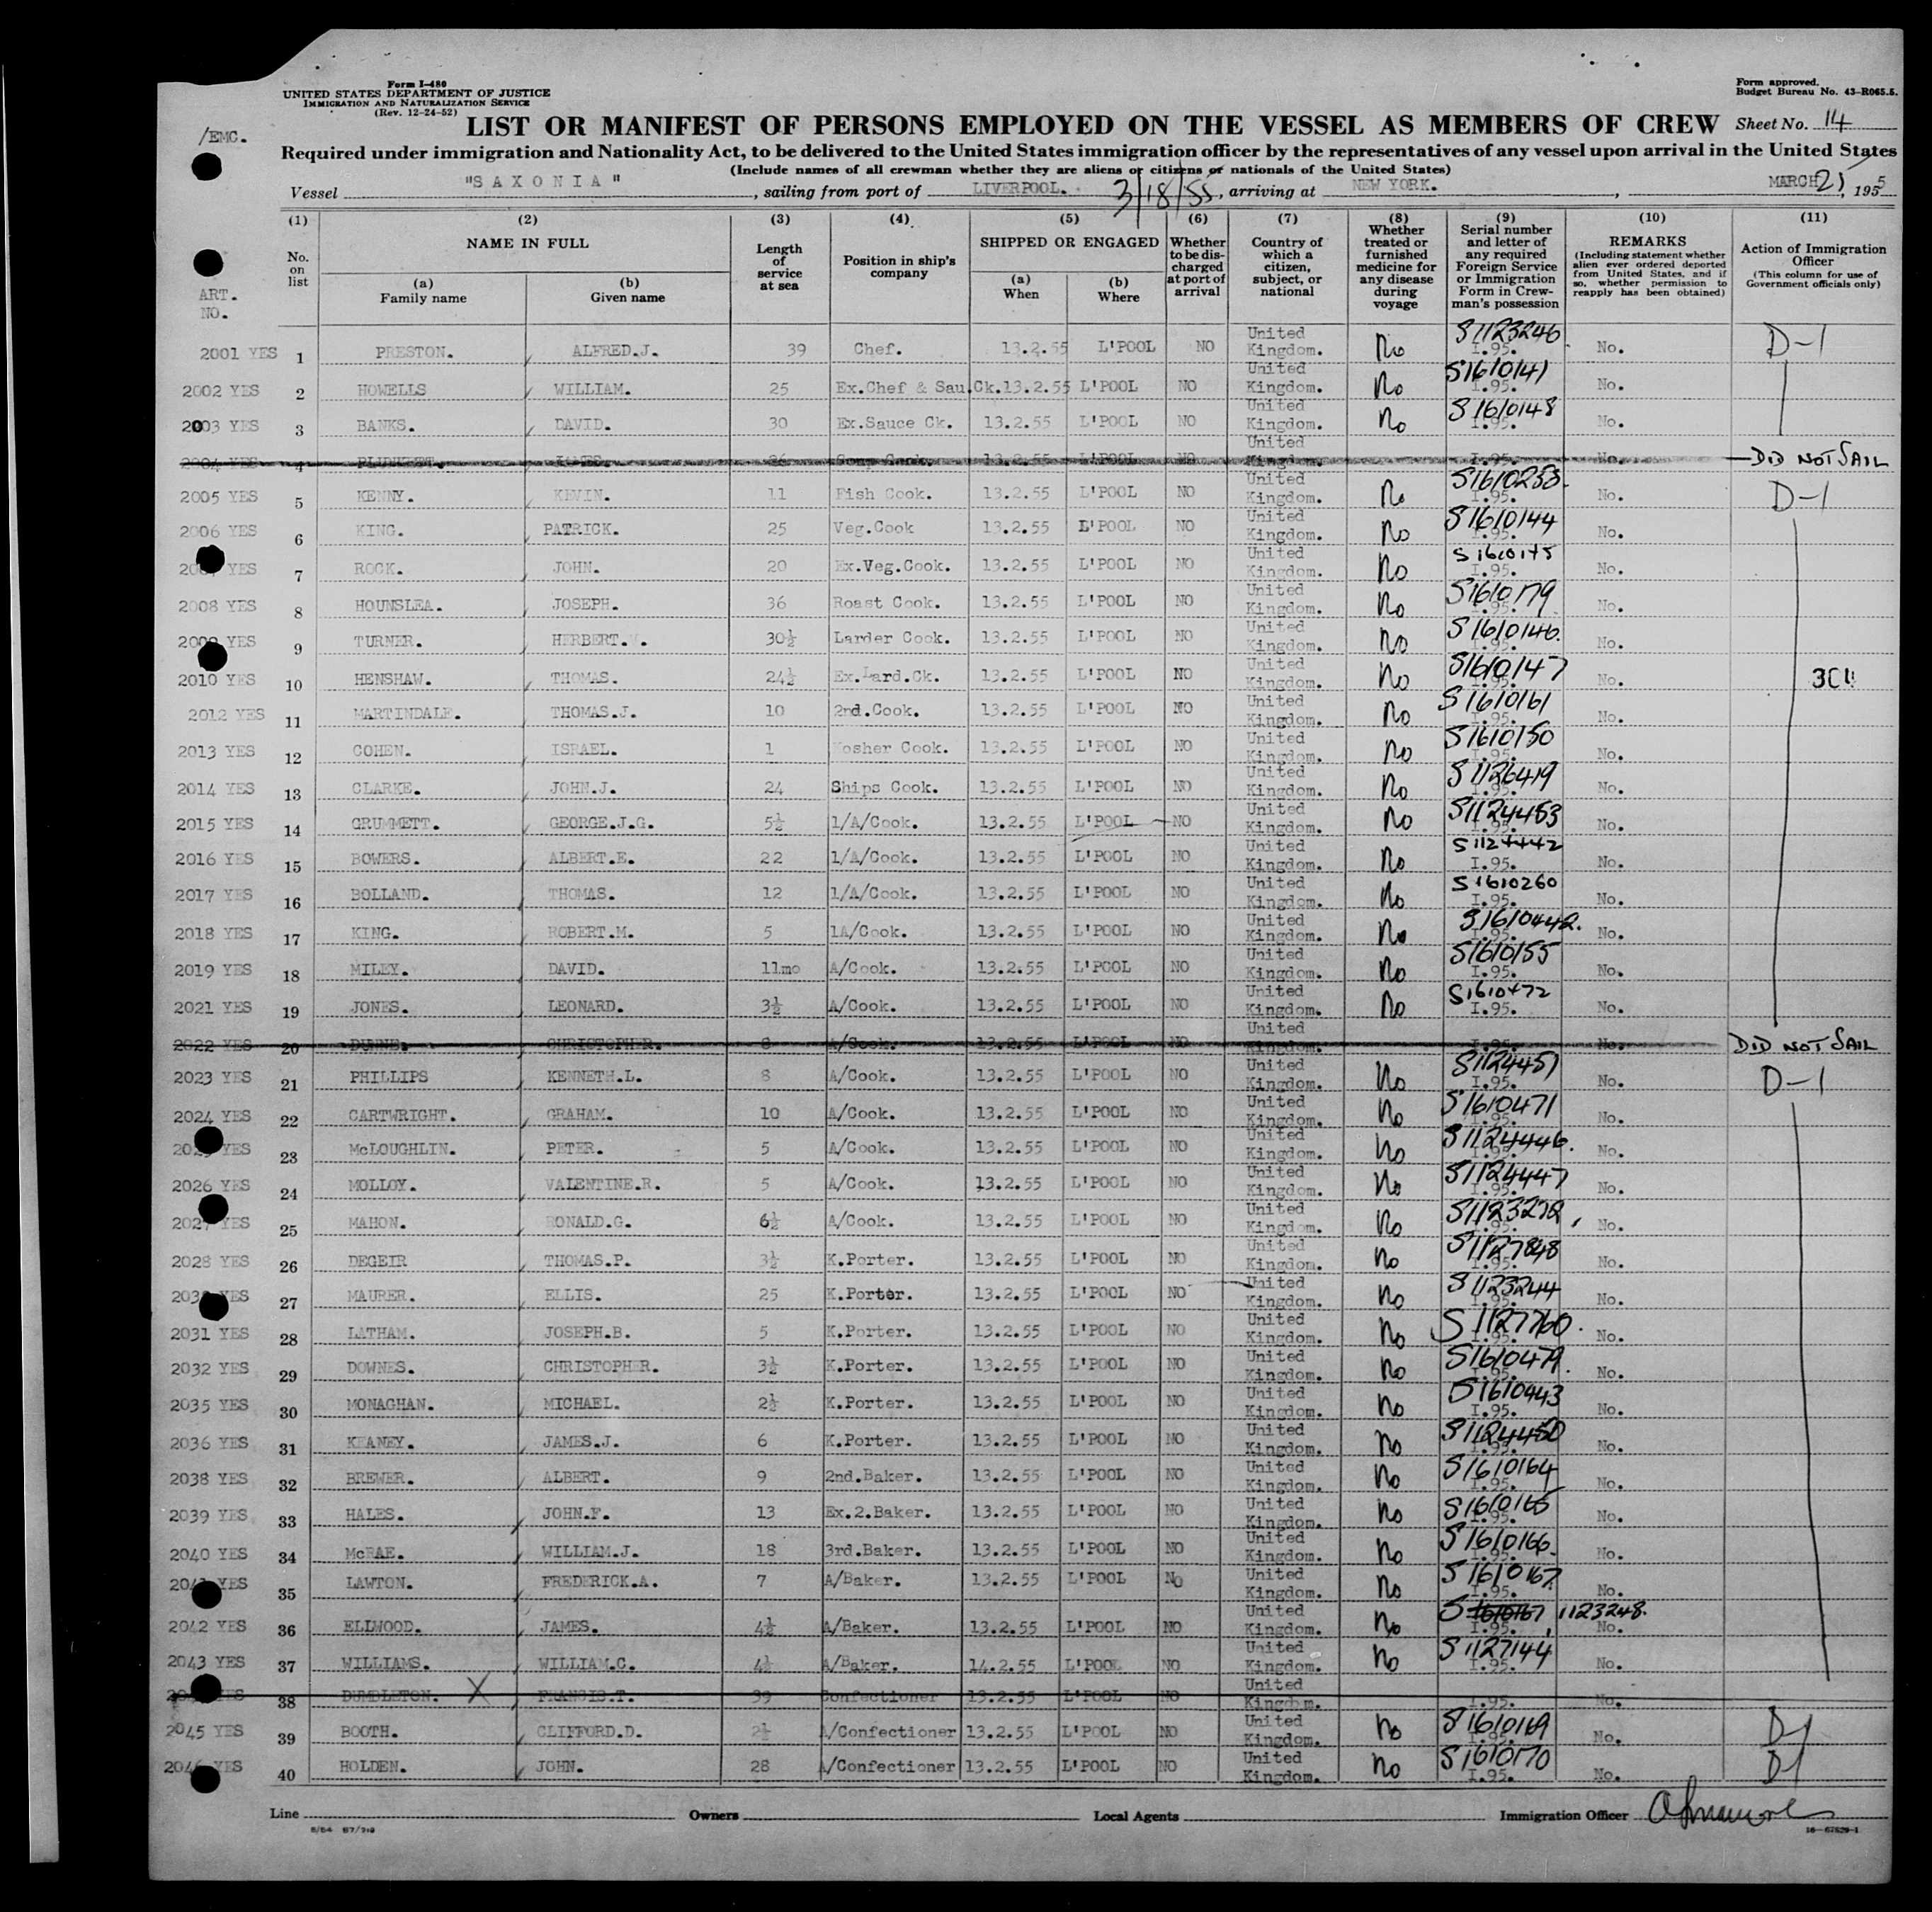 Form I-480
UNITED STATES DEPARTMENT OF JUSTICE
IMMIGRATION AND NATURALIZATION SERVICE
(Rev. 12-24-52)
Form approved.
Budget Bureau No. 43-R065.5.
/EMC.
LIST OR MANIFEST OF PERSONS EMPLOYED ON THE VESSEL AS MEMBERS OF CREW Sheet No. 14
Required under immigration and Nationality Act, to be delivered to the United States immigration officer by the representatives of any vessel upon arrival in the United States
(Include names of all crewman whether they are aliens or citizens or nationals of the United States)
Vessel "SAXONIA", sailing from port of LIVERPOOL. 3/18/55, arriving at NEW YORK., MARCH 25, 1955
(1) (2) (3) (4) (5) (6) (7) (8) (9) (10) (11)
ART. NO. No. on list NAME IN FULL (a) Family name (b) Given name Length of service at sea Position in ship's company SHIPPED OR ENGAGED (a) When (b) Where Whether to be discharged at port of arrival Country of which a citizen, subject, or national Whether treated or furnished medicine for any disease during voyage Serial number and letter of any required Foreign Service or Immigration Form in Crewman's possession REMARKS (Including statement whether alien ever ordered deported from United States, and if so, whether permission to reapply has been obtained) Action of Immigration Officer (This column for use of Government officials only)
2001 YES 1 PRESTON. ALFRED.J. 39 Chef. 13.2.55 L'POOL NO United Kingdom. No S1123246 I.95. No. D-1
2002 YES 2 HOWELLS WILLIAM. 25 Ex.Chef & Sau.Ck. 13.2.55 L'POOL NO United Kingdom. No S1610141 I.95. No.
2003 YES 3 BANKS. DAVID. 30 Ex.Sauce Ck. 13.2.55 L'POOL NO United Kingdom. No S1610148 I.95. No.
2004 YES 4 PLUNKETT. JAMES. 26 Soup Cook. 13.2.55 L'POOL NO United Kingdom. I.95. No. DID NOT SAIL
2005 YES 5 KENNY. KEVIN. 11 Fish Cook. 13.2.55 L'POOL NO United Kingdom. No S1610258. I.95. No. D-1
2006 YES 6 KING. PATRICK. 25 Veg.Cook 13.2.55 L'POOL NO United Kingdom. No S1610144 I.95. No.
YES 7 ROCK. JOHN. 20 Ex.Veg.Cook. 13.2.55 L'POOL NO United Kingdom. No S1610145 I.95. No.
2008 YES 8 HOUNSLEA. JOSEPH. 36 Roast Cook. 13.2.55 L'POOL NO United Kingdom. No S1610179 I.95. No.
2009 YES 9 TURNER. HERBERT. 30½ Larder Cook. 13.2.55 L'POOL NO United Kingdom. No S1610146. I.95. No.
2010 YES 10 HENSHAW. THOMAS. 24½ Ex.Lard.Ck. 13.2.55 L'POOL NO United Kingdom. No S1610147 I.95. No.
2012 YES 11 MARTINDALE. THOMAS.J. 10 2nd.Cook. 13.2.55 L'POOL NO United Kingdom. No S1610161 I.95. No.
2013 YES 12 COHEN. ISRAEL. 1 Kosher Cook. 13.2.55 L'POOL NO United Kingdom. No S1610150 I.95. No.
2014 YES 13 CLARKE. JOHN.J. 24 Ships Cook. 13.2.55 L'POOL NO United Kingdom. No S1126419 I.95. No.
2015 YES 14 GRUMMETT. GEORGE.J.G. 5½ 1/A/Cook. 13.2.55 L'POOL NO United Kingdom. No S1124453 I.95. No.
2016 YES 15 BOWERS. ALBERT.E. 22 1/A/Cook. 13.2.55 L'POOL NO United Kingdom. No S1124442 I.95. No.
2017 YES 16 BOLLAND. THOMAS. 12 1/A/Cook. 13.2.55 L'POOL NO United Kingdom. No S1610260 I.95. No.
2018 YES 17 KING. ROBERT.M. 5 1A/Cook. 13.2.55 L'POOL NO United Kingdom. No S1610442. I.95. No.
2019 YES 18 MILEY. DAVID. 11mo A/Cook. 13.2.55 L'POOL NO United Kingdom. No S1610155 I.95. No.
2021 YES 19 JONES. LEONARD. 3½ A/Cook. 13.2.55 L'POOL NO United Kingdom. No S1610472 I.95. No.
2022 YES 20 DUNNE. CHRISTOPHER. 8 A/Cook. 13.2.55 L'POOL NO United Kingdom. I.95. No. DID NOT SAIL
2023 YES 21 PHILLIPS KENNETH.L. 8 A/Cook. 13.2.55 L'POOL NO United Kingdom. No S1124451 I.95. No. D-1
2024 YES 22 CARTWRIGHT. GRAHAM. 10 A/Cook. 13.2.55 L'POOL NO United Kingdom. No S1610471 I.95. No.
YES 23 McLOUGHLIN. PETER. 5 A/Cook. 13.2.55 L'POOL NO United Kingdom. No S1124446. I.95. No.
2026 YES 24 MOLLOY. VALENTINE.R. 5 A/Cook. 13.2.55 L'POOL NO United Kingdom. No S1124447 I.95. No.
2027 YES 25 MAHON. RONALD.G. 6½ A/Cook. 13.2.55 L'POOL NO United Kingdom. No I.95. No.
2028 YES 26 DEGEIR THOMAS.P. 3½ K.Porter. 13.2.55 L'POOL NO United Kingdom. No S1127848 I.95. No.
YES 27 MAURER. ELLIS. 25 K.Porter. 13.2.55 L'POOL NO United Kingdom. No S1123244 I.95. No.
2031 YES 28 LATHAM. JOSEPH.B. 5 K.Porter. 13.2.55 L'POOL NO United Kingdom. No S1127760. I.95. No.
2032 YES 29 DOWNES. CHRISTOPHER. 3½ K.Porter. 13.2.55 L'POOL NO United Kingdom. No S1610479. I.95. No.
2035 YES 30 MONAGHAN. MICHAEL. 2½ K.Porter. 13.2.55 L'POOL NO United Kingdom. No S1610443 I.95. No.
2036 YES 31 KEANEY. JAMES.J. 6 K.Porter. 13.2.55 L'POOL NO United Kingdom. No S1124450 I.95. No.
2038 YES 32 BREWER. ALBERT. 9 2nd.Baker. 13.2.55 L'POOL NO United Kingdom. No S1610164 I.95. No.
2039 YES 33 HALES. JOHN.F. 13 Ex.2.Baker. 13.2.55 L'POOL NO United Kingdom. No S1610165 I.95. No.
2040 YES 34 McRAE. WILLIAM.J. 18 3rd.Baker. 13.2.55 L'POOL NO United Kingdom. No S1610166. I.95. No.
YES 35 LAWTON. FREDERICK.A. 7 A/Baker. 13.2.55 L'POOL NO United Kingdom. No S1610167. I.95. No.
2042 YES 36 ELLWOOD. JAMES. 4½ A/Baker. 13.2.55 L'POOL NO United Kingdom. No S 1610167 1123248. I.95. No.
2043 YES 37 WILLIAMS. WILLIAM.C. 4½ A/Baker. 14.2.55 L'POOL NO United Kingdom. No S1127144 I.95. No.
YES 38 DUMBLETON. X FRANCIS.T. 39 Confectioner 13.2.55 L'POOL NO United Kingdom. I.95. No.
2045 YES 39 BOOTH. CLIFFORD.D. 2½ A/Confectioner 13.2.55 L'POOL NO United Kingdom. No S1610169 I.95. No. D-1
YES 40 HOLDEN. JOHN. 28 A/Confectioner 13.2.55 L'POOL NO United Kingdom. No S1610170 I.95. No. D-1
Line Owners Local Agents Immigration Officer
16-67529-1